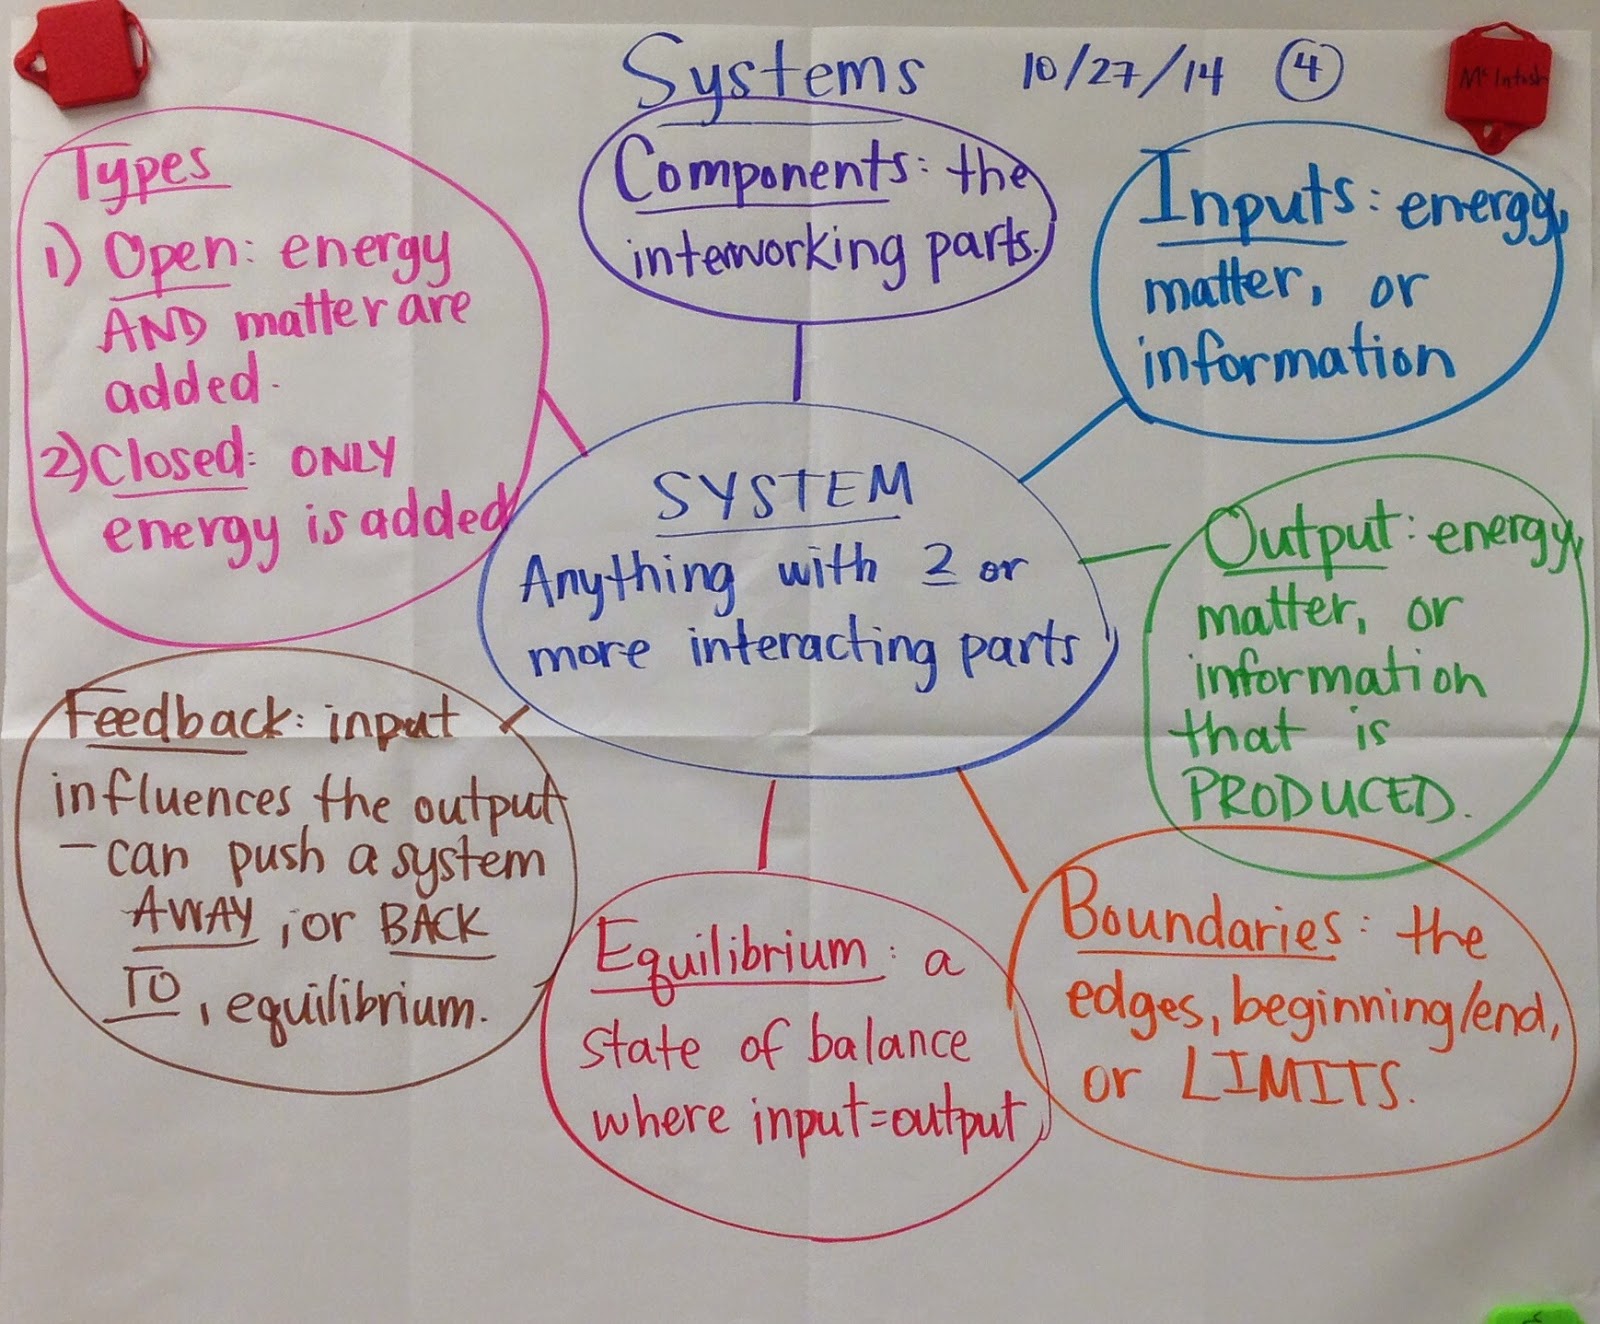 Systems 10/27/14 4
Mc Intosh
Types
1) Open: energy
AND matter are
added.
2) Closed: ONLY
energy is added
Components: the
interworking parts.
Inputs: energy,
matter, or
information
SYSTEM
Anything with 2 or
more interacting parts
Output: energy,
matter, or
information
that is
PRODUCED.
Feedback: input
influences the output
- can push a system
AWAY, or BACK
TO, equilibrium.
Equilibrium: a
state of balance
where input=output
Boundaries: the
edges, beginning/end,
or LIMITS.